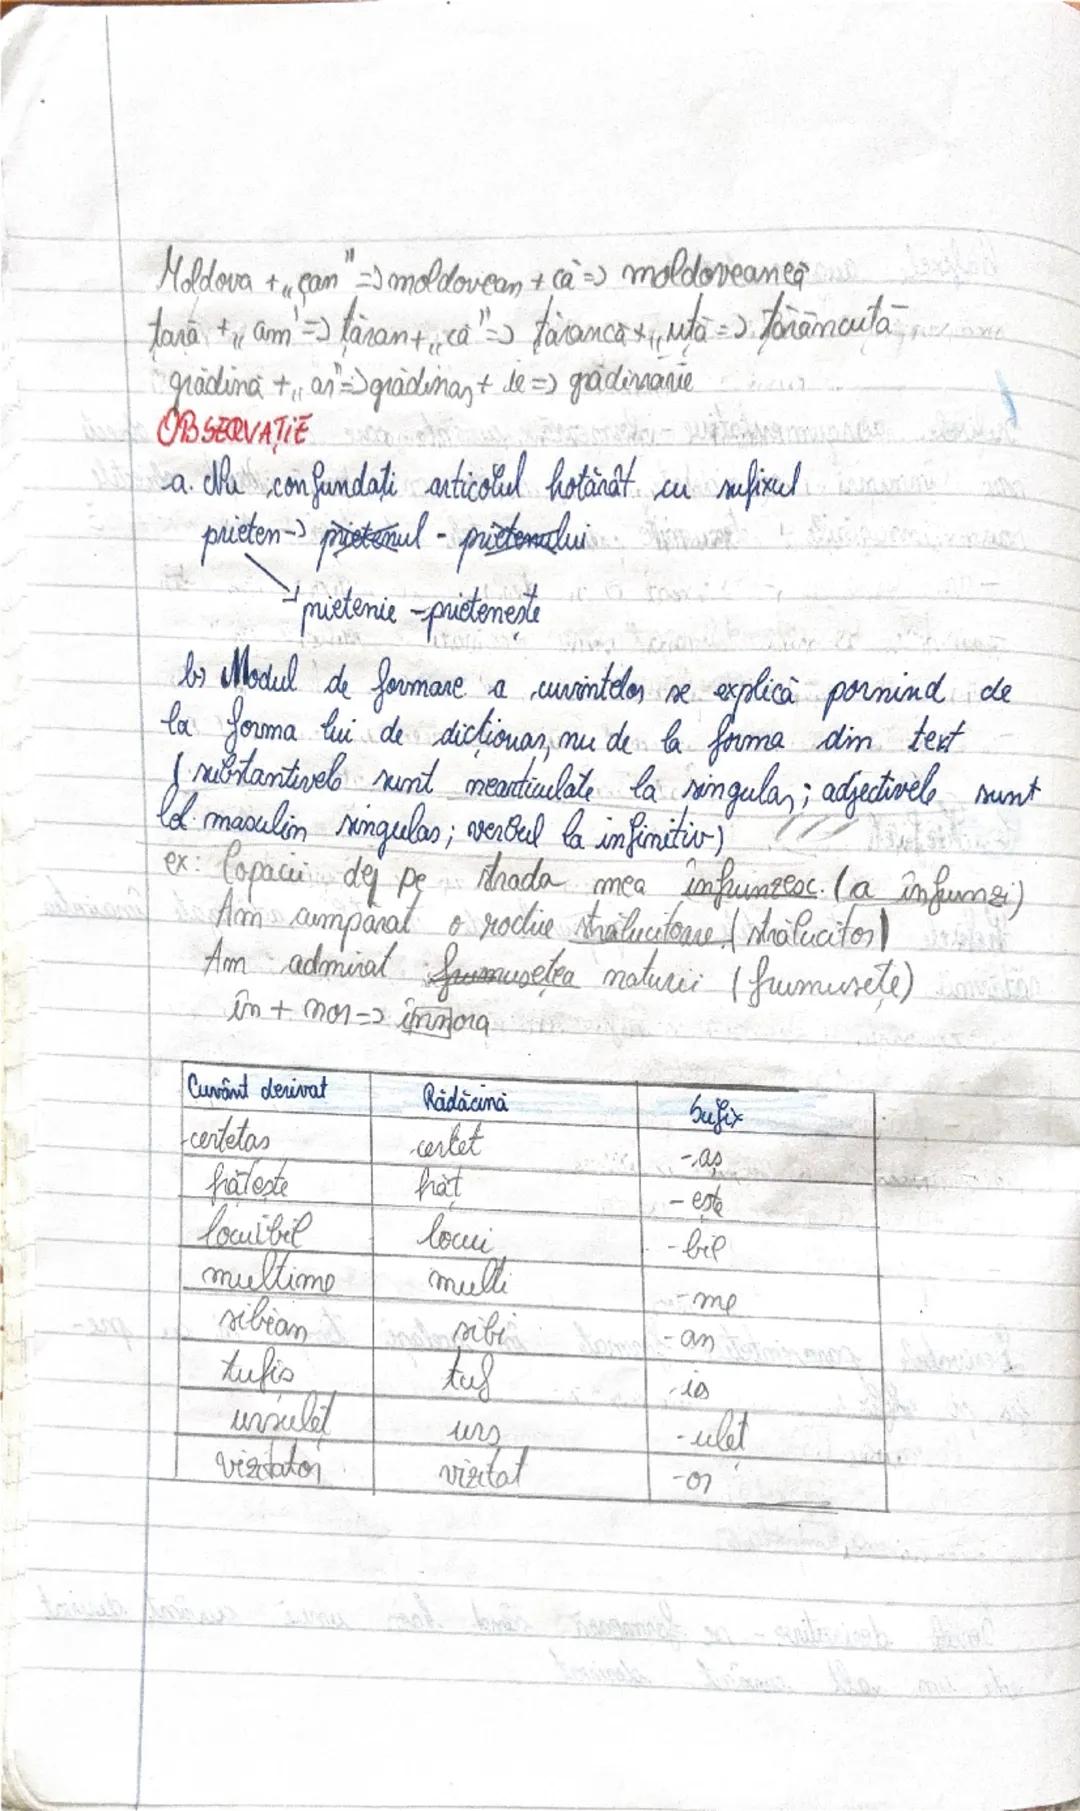 Moldova + „ean" => moldovean + că => moldoveancă
țară + „an" => țăran + „că" => țărancă + „uță => țărăncuță
grădină + „ar" => grădinar + ie => grădinărie
OBSERVAȚIE
a. Nu confundați articolul hotărât cu sufixul
prieten -> prietenul - prietenului
-> prietenie - prietenește
b) Modul de formare a cuvintelor se explică pornind de
la forma lui de dicționar, nu de la forma din text
(substantivele sunt nearticulate la singular; adjectivele sunt
la masculin singular; verbul la infinitiv)
ex: Copacii de pe strada mea înfrunzesc. (a înfrunzi)
Am cumpărat o rochie strălucitoare (strălucitor)
Am admirat frumusețea naturii (frumusețe)
în + nor => înnora
Cuvânt derivat Rădăcină Sufix
certetas certet -aș
frățește frăț -ește
locuibil locui -bil
multime multi -me
sibian sibi -an
tufis tuf -is
ursuleț urs -uleț
vizitator vizitat -or